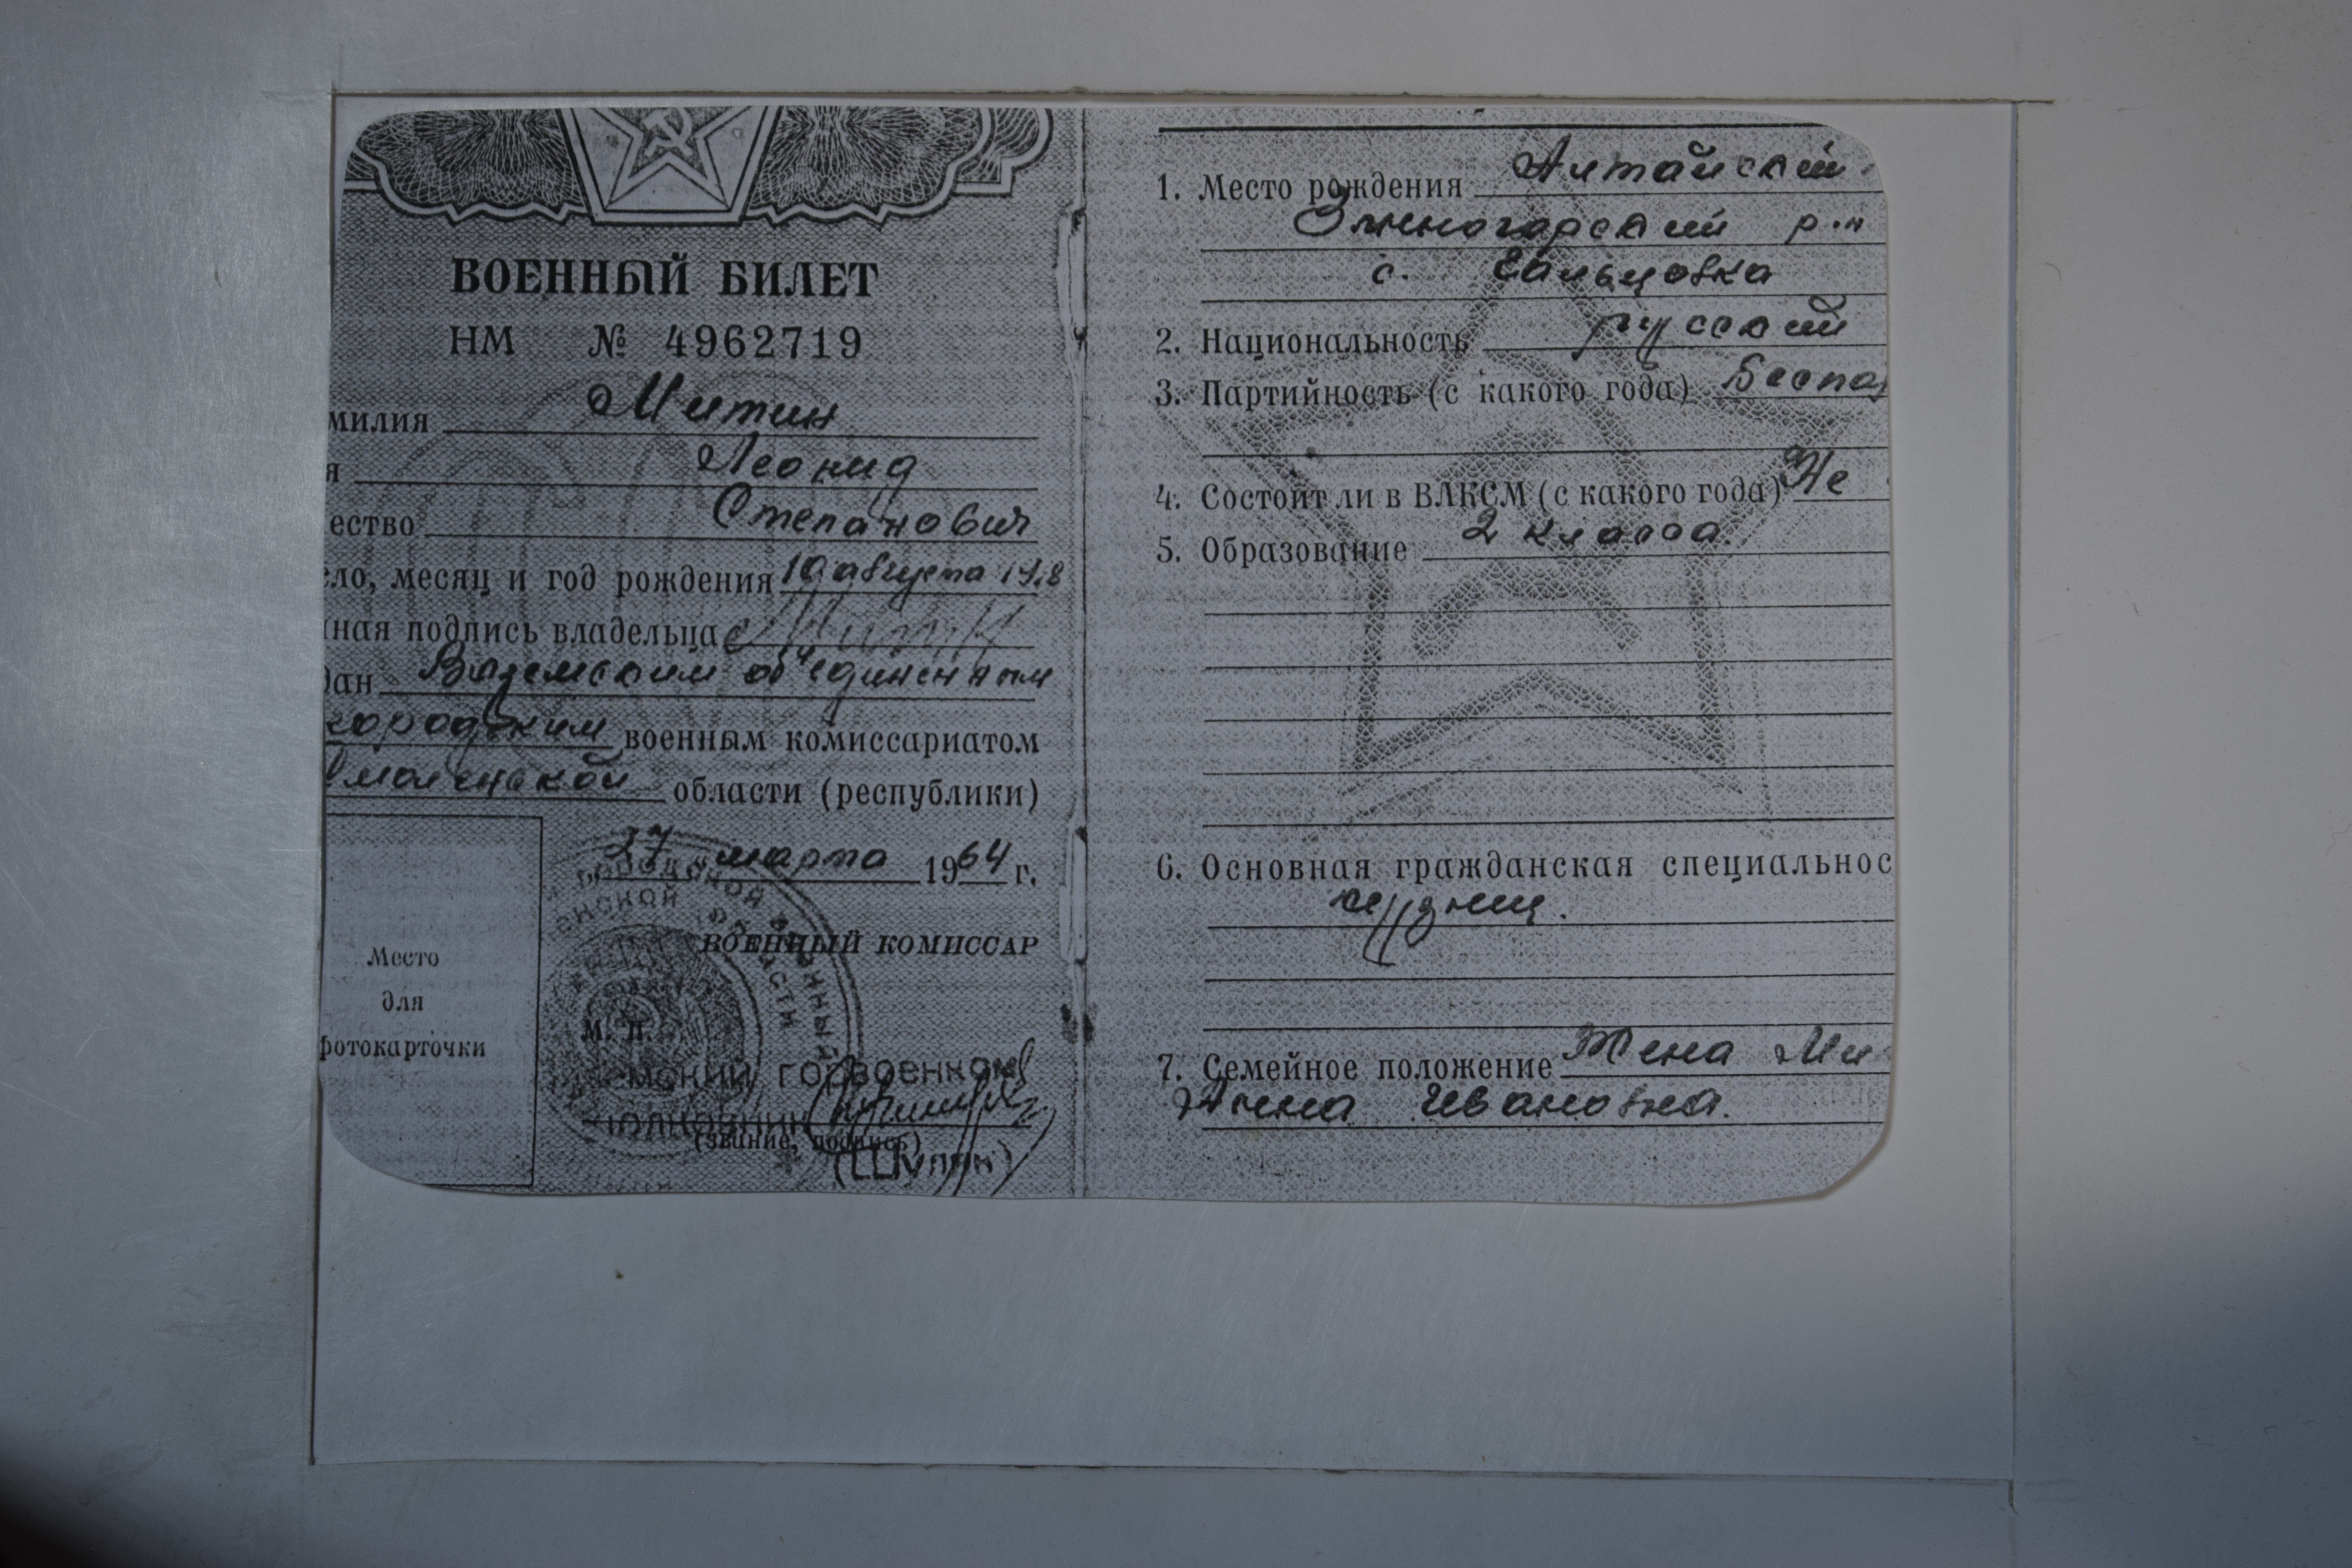 ВОЕННЫЙ БИЛЕТ
НМ № 4962719
милия Митин
я Леонид
ество Степанович
ло, месяц и год рождения 10 августа
ная подпись владельца Митин
дан Вяземским об"единенным
городским военным комиссариатом
моленской области (республики)
27 марта 1964 г.
ВОЕННЫЙ КОМИССАР
Место
для
фотокарточки
М. П.
мский горвоенком
полковник
(звание, подпись)
(Шуляк)
1. Место рождения Алтайский
Змеиногорский р-н
с. Саввушка
2. Национальность русский
3. Партийность (с какого года) Беспар
4. Состоит ли в ВЛКСМ (с какого года) Не
5. Образование 2 класса.
6. Основная гражданская специальнос
кузнец.
7. Семейное положение Жена Ми
Анна Ивановна.